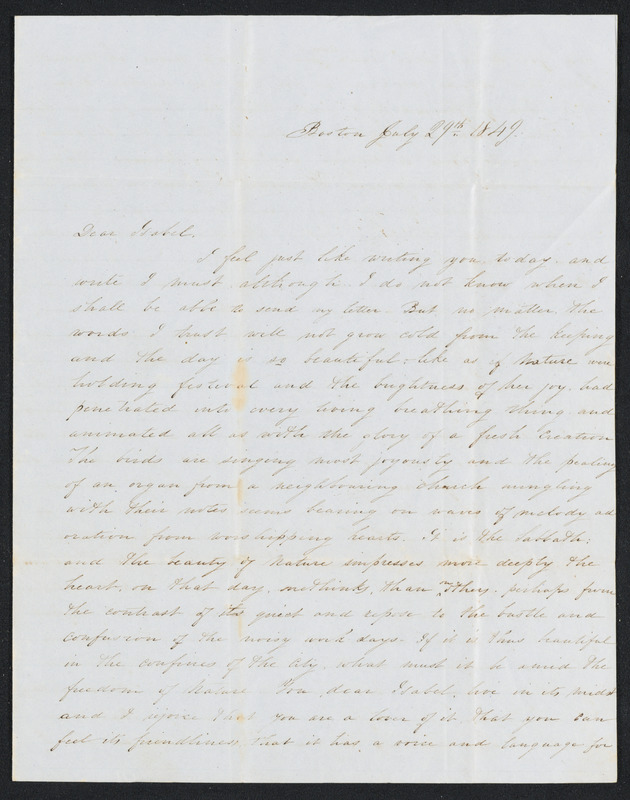 Boston July 29th 1849.
Dear Isabel.
I feel just like writing you to day and
write I must, although I do not know when I
shall be able to send my letter. But no matter the
words I trust will not grow cold from the keeping
and the day is so beautiful, like as if Nature were
holding festival and the brightness of her joy had
penetrated into every living breathing thing and
animated all as with the glory of a fresh creation
The birds are singing most joyously and the pealing
of an organ from a neighbouring church mingling
with their notes seems bearing on waves of melody ad
oration from worshipping hearts. It is the Sabbath;
and the beauty of Nature impresses more deeply the
heart, on that day, methinks, than others. perhaps from
the contrast of its quiet and repose to the bustle and
confusion of the noisy work days. If it is thus beautiful
in the confines of the city, what must it be amid the
freedom of Nature You, dear Isabel, live in its midst
and I rejoice that you are a lover of it, that you can
feel its friendliness that it has a voice and language for